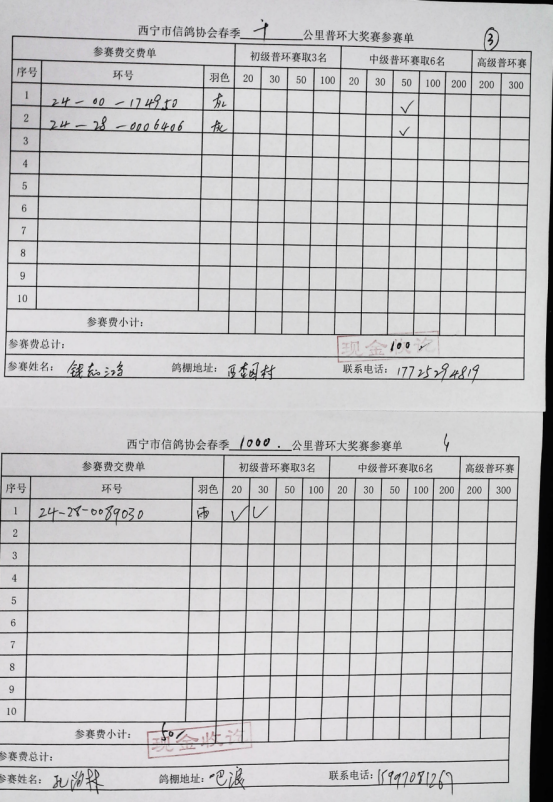 西宁市信鸽协会春季 千 公里普环大奖赛参赛单 ③
参赛费交费单 初级普环赛取3名 中级普环赛取6名 高级普环赛
序号 环号 羽色 20 30 50 100 20 30 50 100 200 200 300
1 24-00-174950 灰 ✓
2 24-28-0006406 灰 ✓
3
4
5
6
7
8
9
10
参赛费小计:
参赛费总计: 现金收讫 100.
参赛姓名: 钱志鸿 鸽棚地址: 村 联系电话: 17725294819
西宁市信鸽协会春季 1000. 公里普环大奖赛参赛单 4
参赛费交费单 初级普环赛取3名 中级普环赛取6名 高级普环赛
序号 环号 羽色 20 30 50 100 20 30 50 100 200 200 300
1 24-28-0089030 雨 ✓ ✓
2
3
4
5
6
7
8
9
10
参赛费小计: 50. 现金收讫
参赛费总计:
参赛姓名: 林 鸽棚地址: 吧浪 联系电话: 15997081267